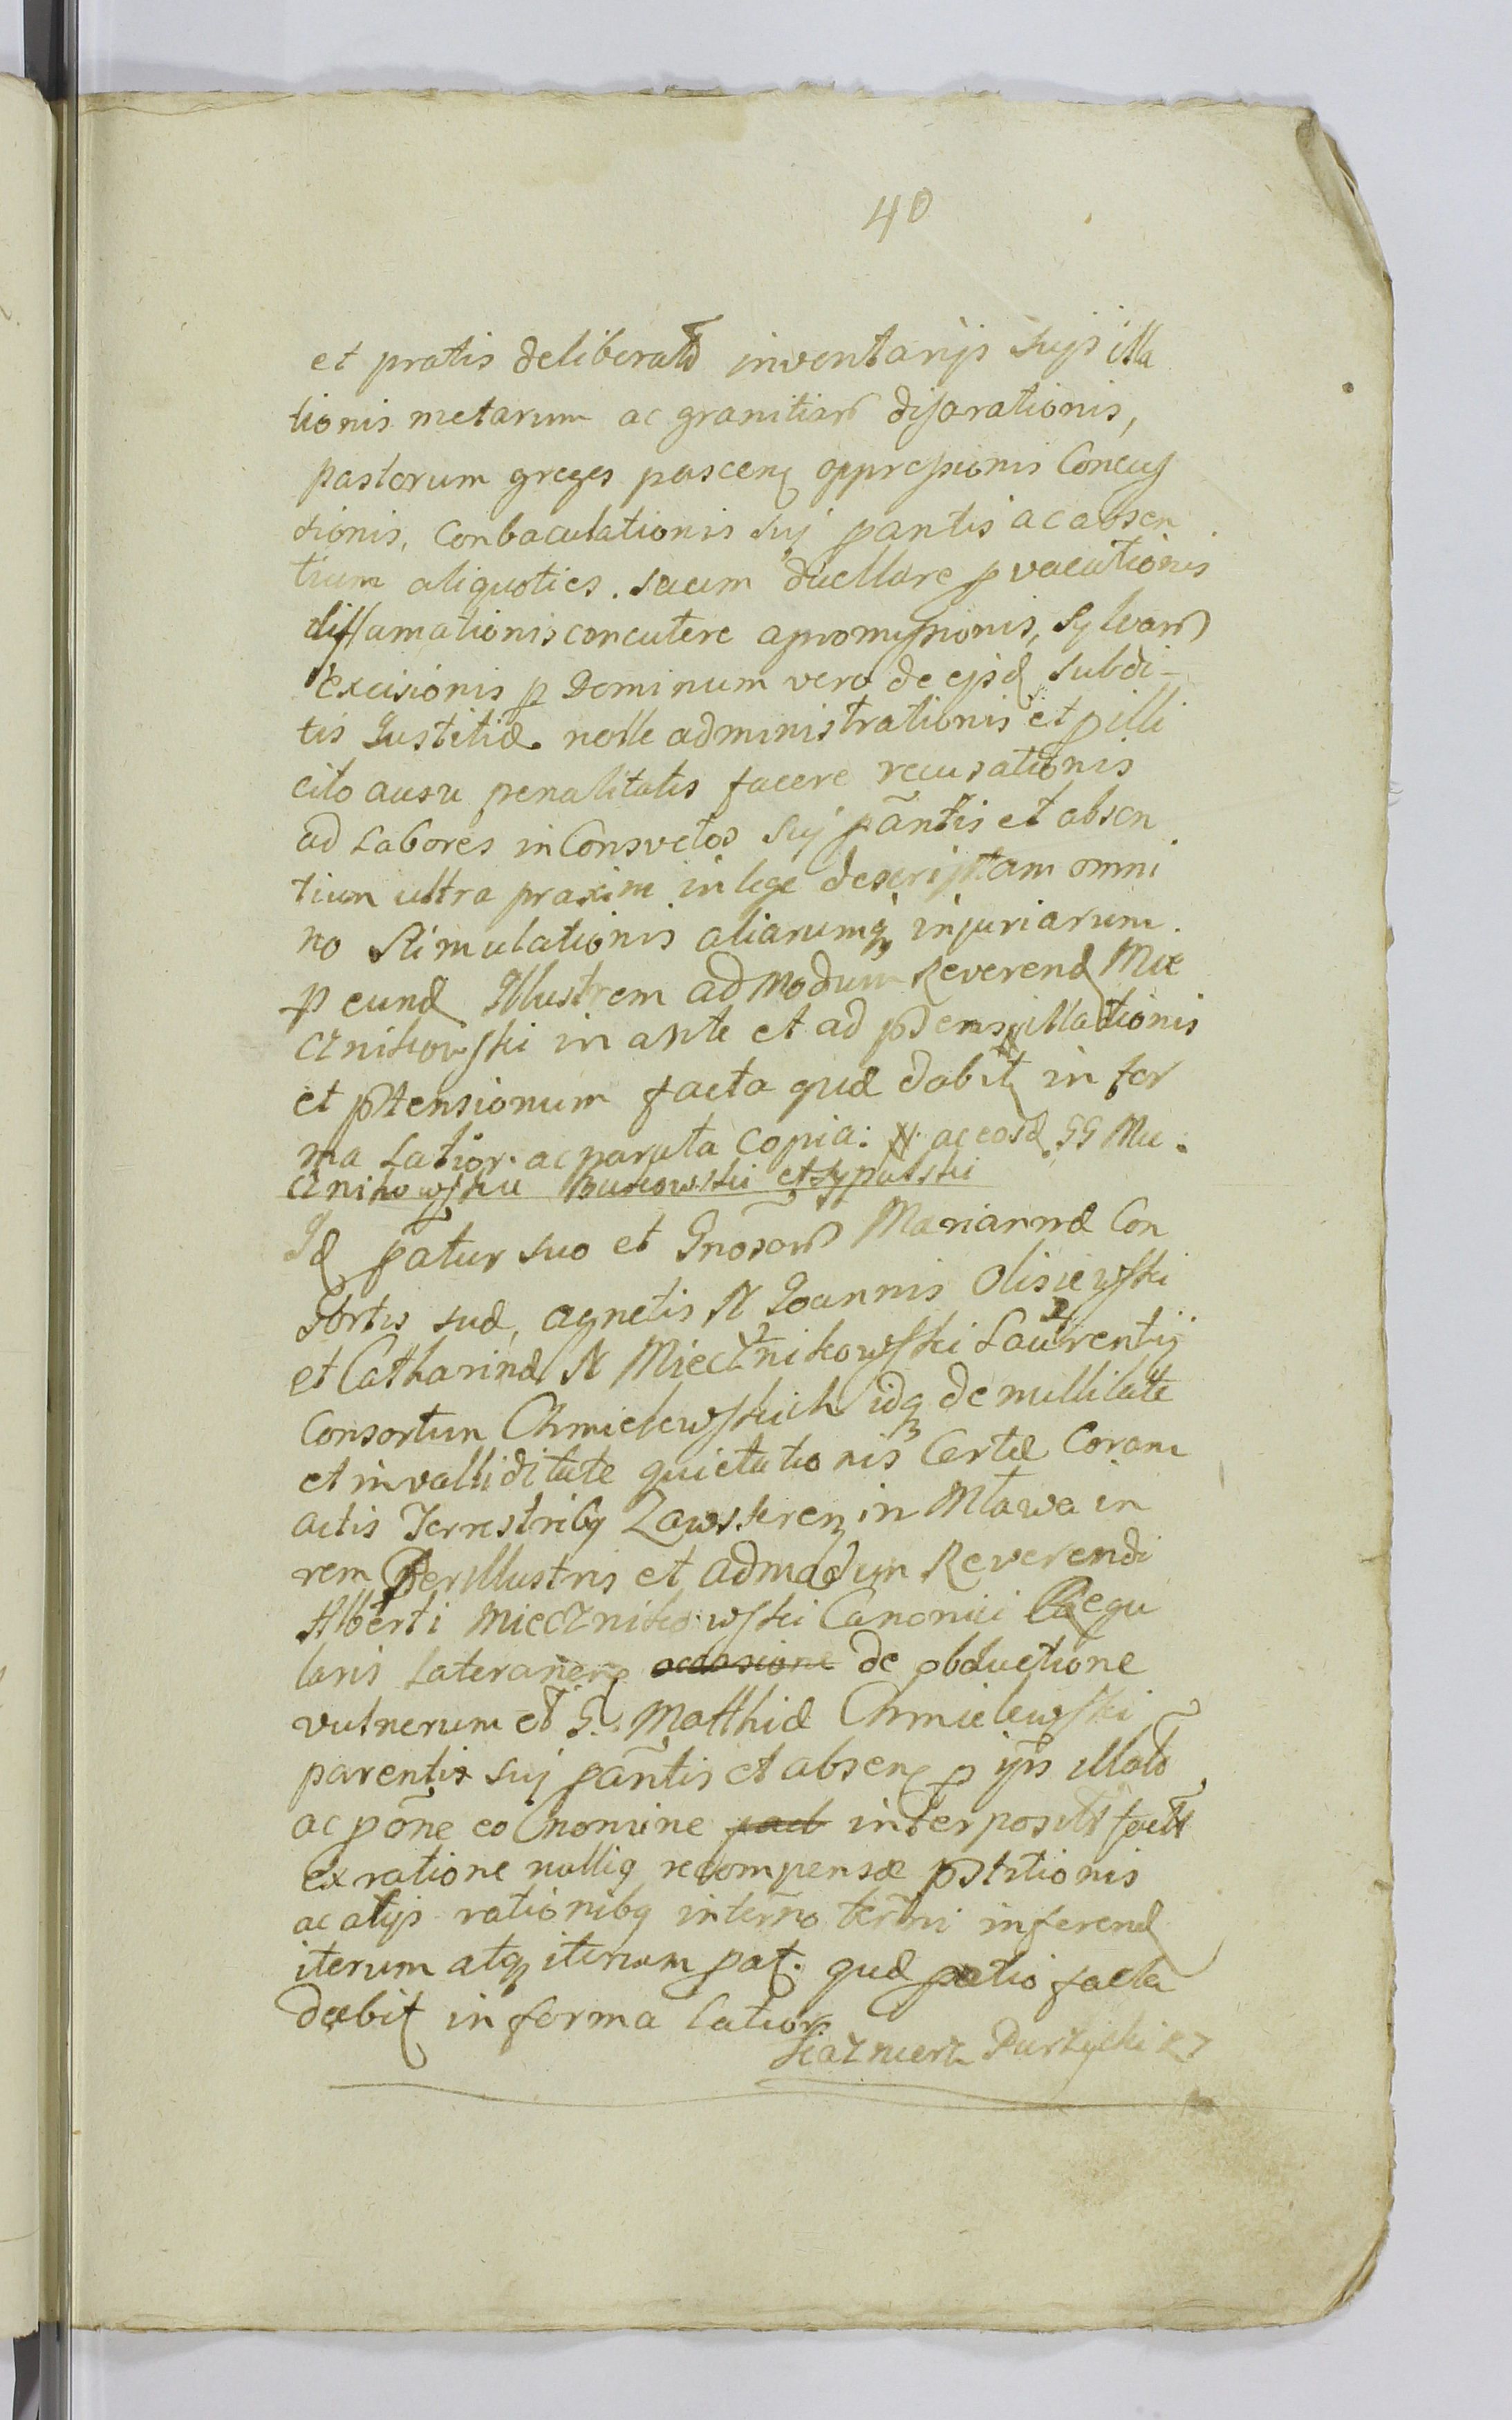 40
et pratis deliberato inventarijs suijs illa
tionis metarum ac granitiar disarationis,
pastorum greges pascenq oppressionis Concuss
tionis, Conbaculationis sui pantis ac absen
tium aliquoties. secum duellare pvocationis
diffamationis concutere apromissionis, Sylvar
excisionis p Dominum vero de ejsd subdi-
tis Justitiæ nolle administrationis et p illi
cito ausu penalitatis facere recusationis
ad Labores inConsvetos sui pantis et absen
tium ultra praxim in lege descriptam omni
no Stimulationis aliarumq injuriarum.
p eund Illustrem admodum Reverend Mie
cznikowski in ante et ad pdens illationis
et ptensionum facta quæ dabit in for
ma Latior. ac parata Copia: N. ac eosd. GG Mie.
cznikowsku Bukowski et Sypulski
Id patur suo et Gnosar Mariannæ Con
sortis suæ, agnetis N Joannis Olisiewski
et Catharinæ N Miecznikowski Laurentij
Consortum Chmielewskich idq de nullitate
et invalliditate quietationis Certæ Coram
actis Terrestribq Zawskren in Mlawa in
rem Perillustris et admodum Reverendi
Alberti Miecznikowski Canonici Regu
laris Lateranenq occasione de obductione
vulnerum et G. Matthiæ Chmielewski
parentis sui pantis et absenq p ijs illato
ac pone eo nomine fact interposit fact
ex ratione nulliq recompensæ pstitionis
ac alijs rationibq interno termi inferend
iterum atq iterum pat. quæ patio facta
dabit in forma latior
Kazmierz Purzycki